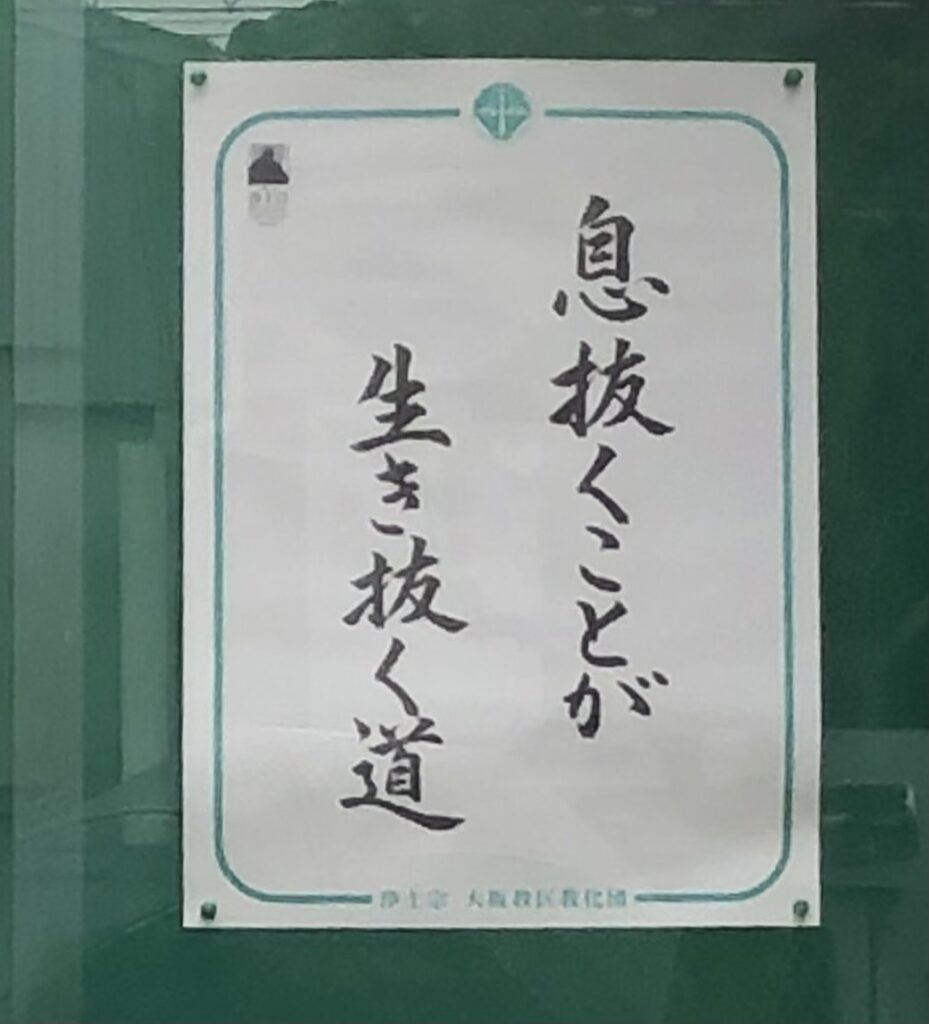 息抜くことが
生き抜く道
浄土宗 大阪教区教化団